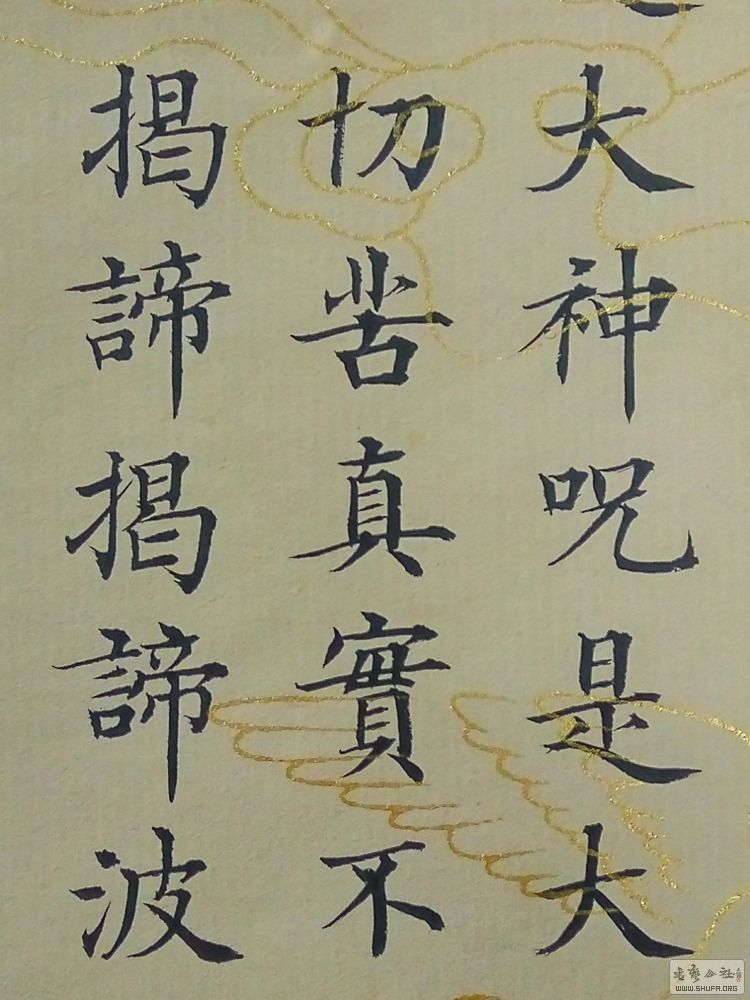 大神咒是大
切苦真實不
揭諦揭諦波
WWW.SHUFA.ORG